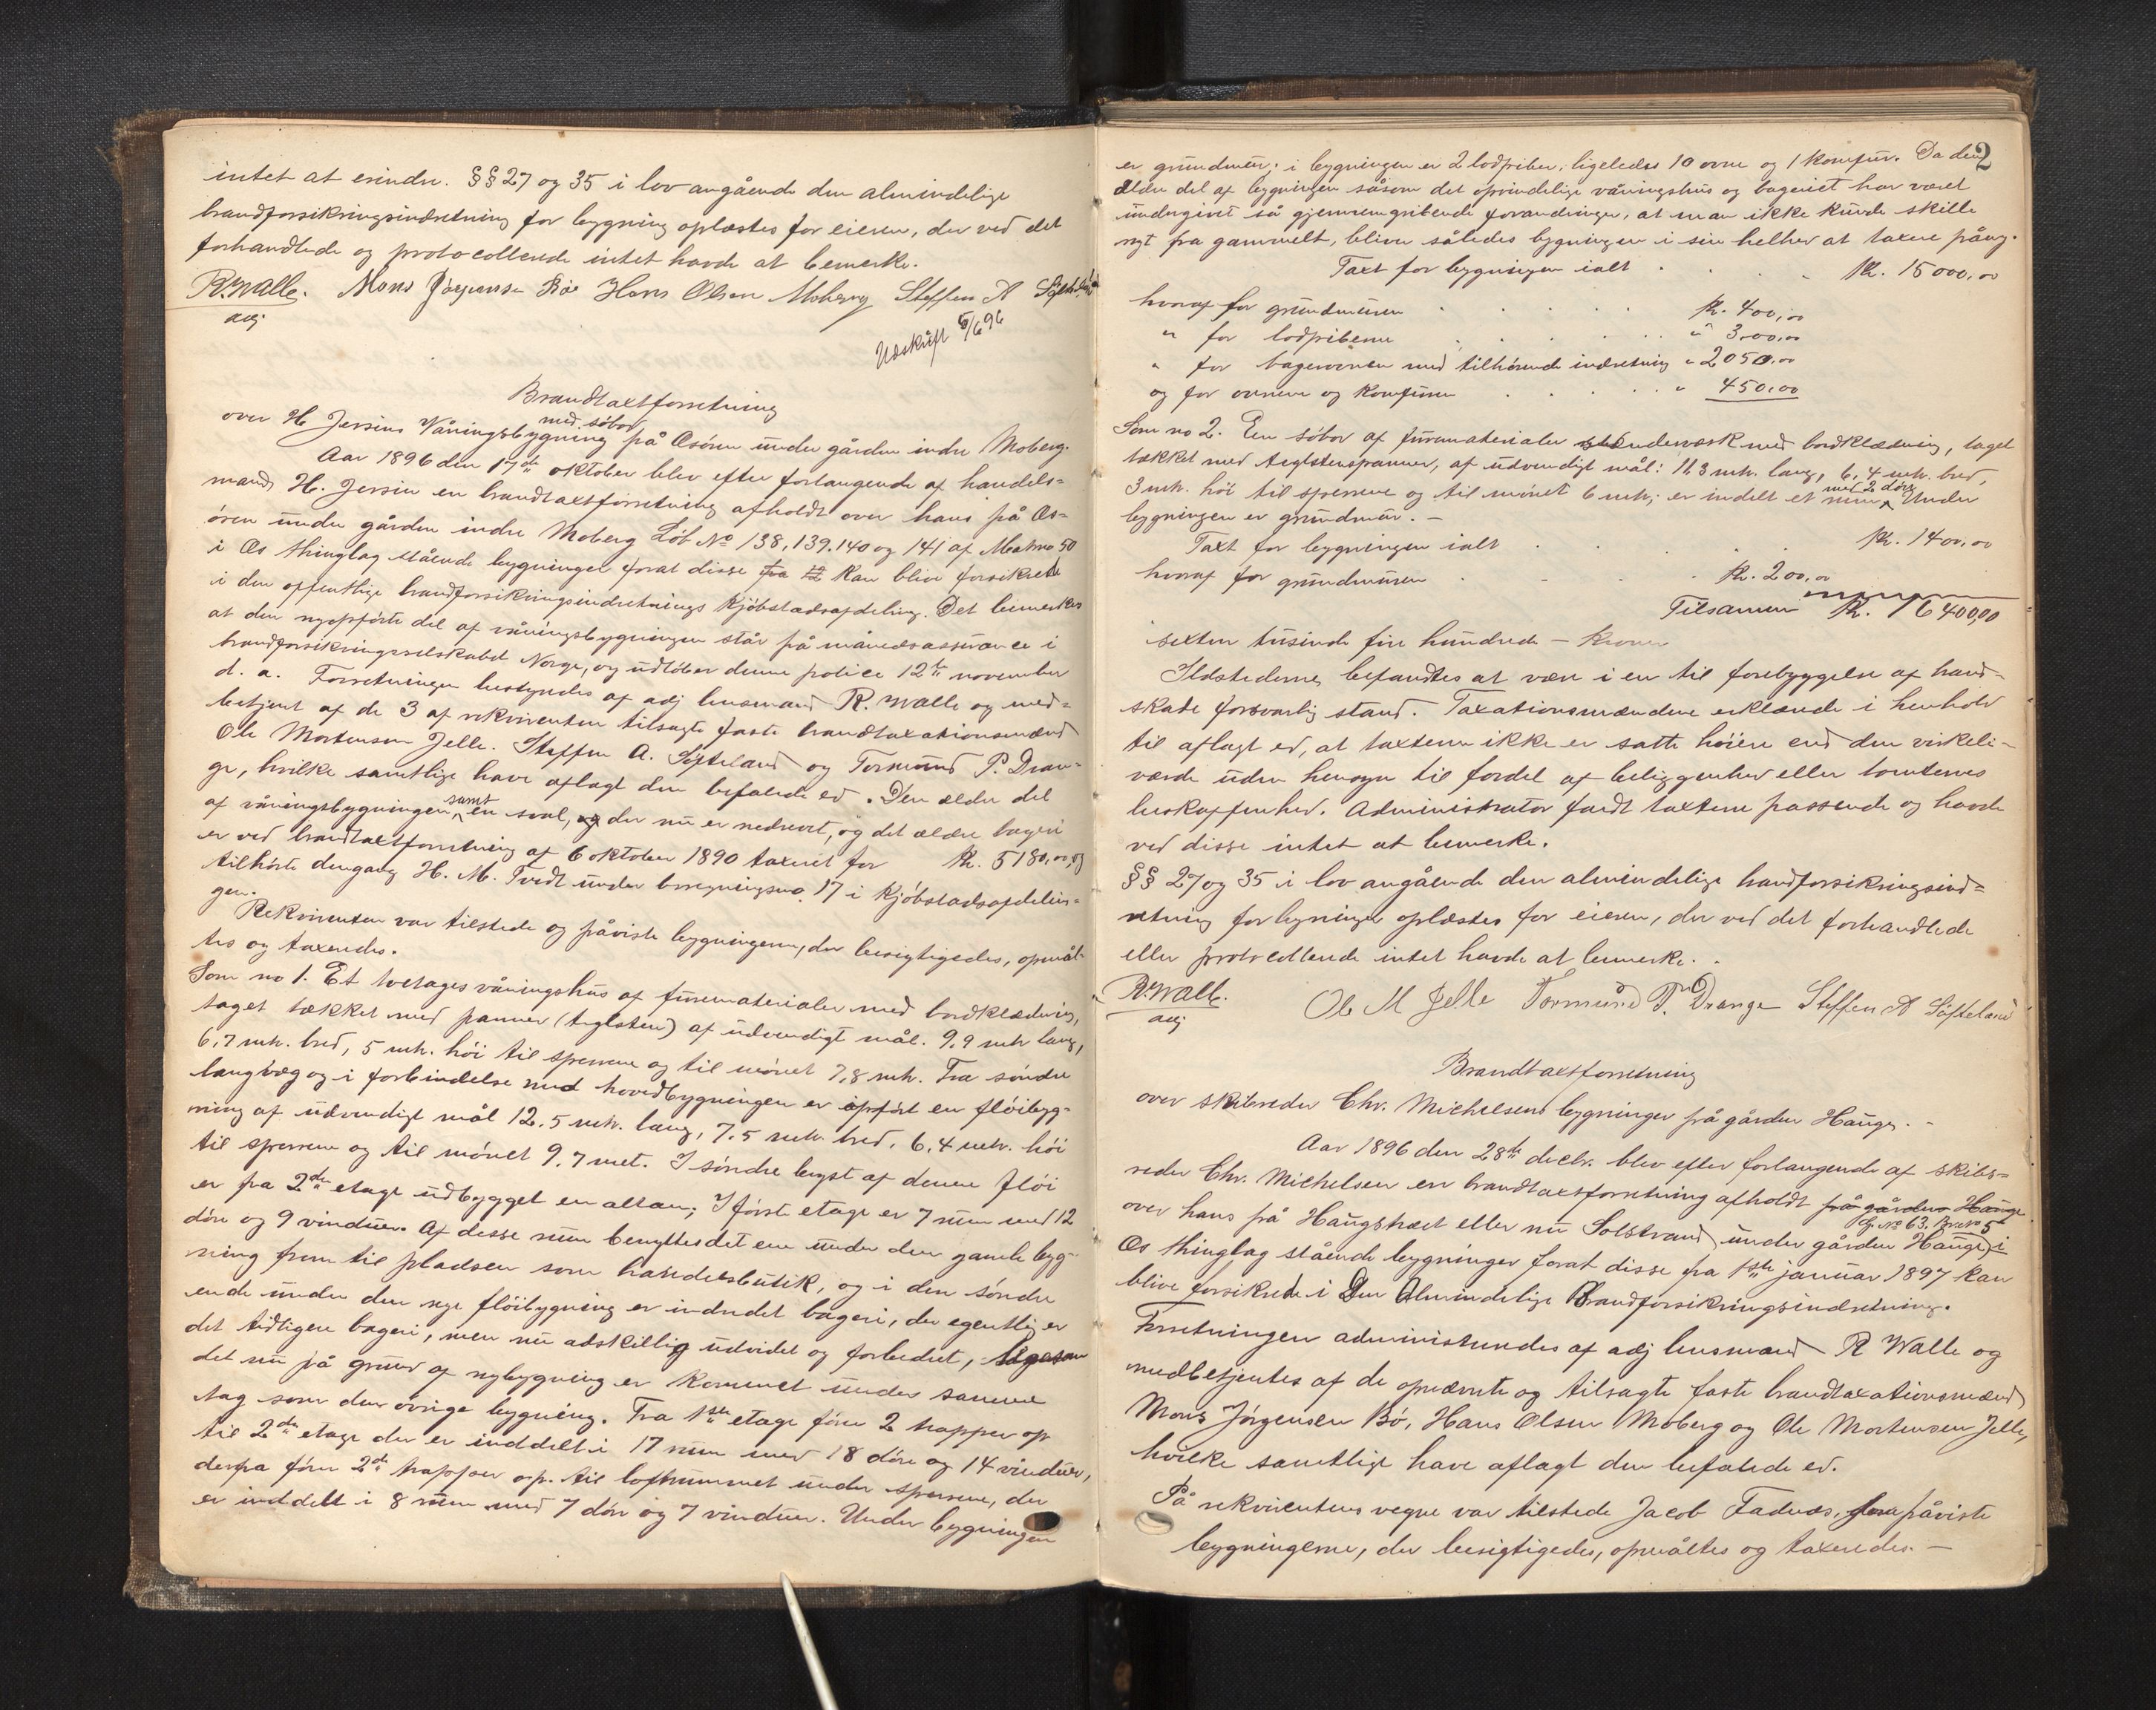 intet at erindre. §§ 27 og 35 i lov angående den almindelige
brandforsikringsindretning for bygning oplæstes for eieren, der ved det
forhandlede og protocollerede intet havde at bemerke.
R. Walle. Mons Jørgensen Bø Hans Olsen Moberg Steffen A Søfteland
adj
Udskrift 5/6 96
Brandtaxtforretning
over H. Jersins Våningsbygning med søbod på Osøren under gården indre Moberg.
Aar 1896 den 17de oktober blev efter forlangende af handels=
mand H. Jersin en brandtaxtforretning afholdt over hans på Os=
øren under gården indre Moberg Løb No 138, 139. 140 og 141 af Matrno 50
i Os thinglag stående bygninger forat disse fra kan blive forsikrede
i den offentlige brandforsikringsindretnings kjøbstadsafdeling. Det bemerkes
at den nyopførte del af våningsbygningen står på månedsassurance i
brandforsikringsselskabet Norge, og udløber denne police 12te november
d. a. Forretningen bestyredes af adj lensmand R. Walle og med=
betjent af de 3 af rekvirenten tilsagte faste brandtaxationsmænd
Ole Mortensen Jelle. Steffen A. Søfteland og Tormund P. Dran=
ge, hvilke samtlige have aflagt den befalede ed. Den ældre del
af våningsbygningen, samt en sval, og der nu er nedrevet, og det ældre bageri
er ved brandtaxtforretning af 6 oktober 1890 taxeret for Kr. 5180,00, og
tilhørte dengang H. M. Tvedt under beregningsno. 17 i kjøbstadsafdelin=
gen.
Rekvirenten var tilstede og påviste bygningerne, der besigtigedes, opmål=
tes og taxeredes.
Som no 1. Et toetages våningshus af furematerialer med bordklædning,
taget tækket med panner (teglsten) af udvendigt mål. 9,9 mtr lang,
6,7 mtr. bred, 5 mtr. høi til sperrene og til mønet 7,8 mtr. Fra søndre
langvæg og i forbindelse med hovedbygningen er opført en fløibyg=
ning af udvendigt mål 12,5 mtr. lang, 7,5 mtr. bred, 6,4 mtr. høi
til sperrene og til mønet 9,7 met. I søndre bryst af denne fløi
er fra 2den etage udbygget en altan; I første etage er 7 rum med 12
døre og 9 vinduer. Af disse rum benyttes det ene under den gamle byg=
ning frem til pladsen som handelsbutik, og i den søndre
ende under den nye fløibygning er indredet bageri, der egentlig er
det tidligere bageri, men nu adskillig udvidet og forbedret,
det nu på grund af nybygning er kommet under samme
tag som den øvrige bygning. Fra 1ste etage fører 2 trapper op
til 2den etage der er inddelt i 17 rum med 18 døre og 14 vinduer,
derfra fører 2de trapper op til loftrummet under sperrene, der
er inddelt i 8 rum med 7 døre og 7 vinduer. Under bygningen
2
er grundmur; i bygningen er 2 lodpiber, ligeledes 10 ovne og 1 komfur. Da den
ældre del af bygningen såsom det oprindelige våningshus og bageriet har været
undergivet så gjennemgribende forandringer, at man ikke kunde skille
nyt fra gammelt, bliver således bygningen i sin helhed at taxere påny.
Taxt for bygningen ialt . . . . Kr. 15000,00
hvoraf for grundmuren . . . . Kr. 400,00
" for lodpiberne . . . . " 300,00
" for bagerovnen med tilhørende indretning " 2050,00
og for ovnene og komfuren . . . " 450,00
Som no 2. En søbod af furumaterialer stenderværk med bordklædning, taget
tækket med teglstenspanner, af udvendigt mål: 11.3 mtr. lang, 6,4 mtr. bred,
3 mtr. høi til sperrene og til mønet 6 mtr; er indelt et rum med 2 døre. Under
bygningen er grundmur. –
Taxt for bygningen ialt . . . . Kr. 1400,00
hvoraf for grundmuren . . . Kr. 200,00
Tilsammen Kr. 16400,00
sexten tusinde fire hundrede – kroner
Ildstederne befandtes at være i en til forebyggelse af brand=
skade forsvarlig stand. Taxationsmændene erklærede i henhold
til aflagt ed, at taxterne ikke er satte høiere end den virkeli=
værde uden hensyn til fordel af beliggenhed eller tomternes
beskaffenhed. Administrator fandt taxterne passende og havde
ved disse intet at bemerke.
§§ 27 og 35 i lov angående den almindelige brandforsikringsind=
retning for bygninger oplæstes for eieren, der ved det forhandlede
eller protocollerede intet havde at bemerke.
R. Walle. Ole M Jelle Tormund P. Drange Steffen A Søfteland
adj
Brandtaxtforretning
over skibsreder Chr. Michelsens bygninger på gården Hauge. –
Aar 1896 den 28de decbr. blev efter forlangende af skibs=
reder Chr. Michelsen en brandtaxtforretning afholdt på gården Hauge
over hans på Haugstræet eller nu Solstrand under gården Hauge, G. No 63. Brno 5 i
Os thinglag stående bygninger forat disse fra 1ste januar 1897 kan
blive forsikrede i Den Almindelige Brandforsikringsindretning.
Forretningen administreredes af adj lensmand R Walle og
medbetjentes af de opnævnte og tilsagte faste brandtaxationsmænd
Mons Jørgensen Bø, Hans Olsen Moberg og Ole Mortensen Jelle,
hvilke samtlige have aflagt den befalede ed.
På rekvirentens vegne var tilstede Jacob Fadnæs, påviste
bygningerne, der besigtigedes, opmåltes og taxeredes. –